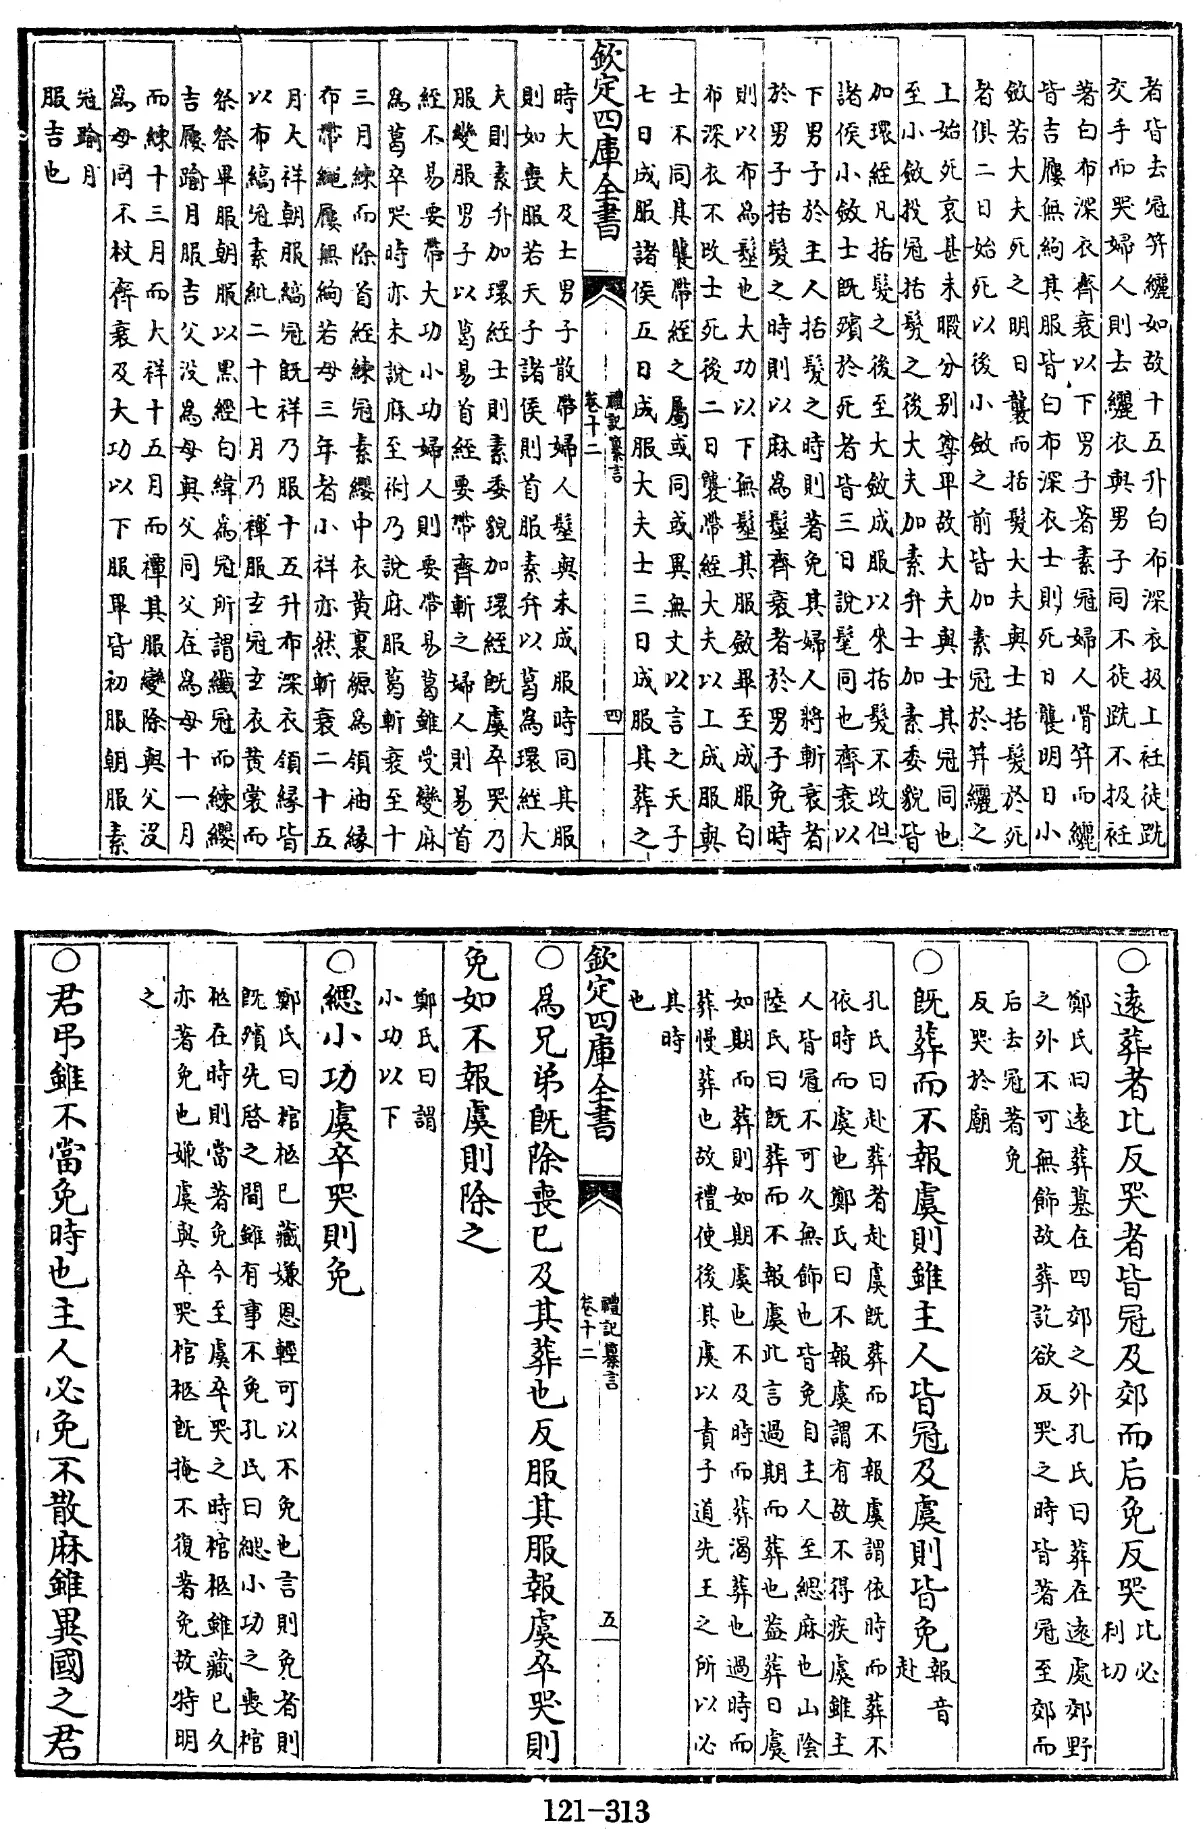 者皆去冠笄纚如故十五升白布深衣扱上衽徒跣
交手而哭婦人則去纚衣與男子同不徒跣不扱衽
著白布深衣齊衰以下男子著素冠婦人骨笄而纚
皆吉屨無絇其服皆白布深衣士則死日襲明日小
斂若大夫死之明日襲而括髮大夫與士括髮於死
者俱二日始死以後小斂之前皆加素冠於笄纚之
上始死哀甚未暇分別尊卑故大夫與士其冠同也
至小斂投冠括髮之後大夫加素弁士加素委貌皆
加環絰凡括髮之後至大斂成服以來括髮不改但
諸侯小斂士既殯於死者皆三日說髦同也齊衰以
下男子於主人括髮之時則著免其婦人將斬衰者
於男子括髮之時則以麻為髽齊衰者於男子免時
則以布為髽也大功以下無髽其服斂畢至成服白
布深衣不改士死後二日襲帶絰大夫以上成服與
士不同其襲帶絰之屬或同或異無文以言之天子
七日成服諸侯五日成服大夫士三日成服其葬之
欽定四庫全書
禮記纂言
卷十二
四
時大夫及士男子散帶婦人髽與未成服時同其服
則如喪服若天子諸侯則首服素弁以葛為環絰大
夫則素弁加環絰士則素委貌加環絰既虞卒哭乃
服變服男子以葛易首絰要帶齊斬之婦人則易首
絰不易要帶大功小功婦人則要帶易葛雖受變麻
為葛卒哭時亦未說麻至祔乃說麻服葛斬衰至十
三月練而除首絰練冠素纓中衣黃裏縓為領袖緣
布帶繩屨無絇若母三年者小祥亦然斬衰二十五
月大祥朝服縞冠既祥乃服十五升布深衣領緣皆
以布縞冠素紕二十七月乃禫服玄冠玄衣黃裳而
祭祭畢服朝服以黑經白緯為冠所謂纖冠而練纓
吉屨踰月服吉父沒為母與父同父在為母十一月
而練十三月而大祥十五月而禫其服變除與父沒
為母同不杖齊衰及大功以下服畢皆初服朝服素
冠踰月
服吉也
○遠葬者比反哭者皆冠及郊而后免反哭比必
利切
鄭氏曰遠葬墓在四郊之外孔氏曰葬在遠處郊野
之外不可無飾故葬訖欲反哭之時皆著冠至郊而
后去冠著免
反哭於廟
○既葬而不報虞則雖主人皆冠及虞則皆免報音
赴
孔氏曰赴葬者赴虞既葬而不報虞謂依時而葬不
依時而虞也鄭氏曰不報虞謂有故不得疾虞雖主
人皆冠不可久無飾也皆免自主人至緦麻也山陰
陸氏曰既葬而不報虞此言過期而葬也蓋葬日虞
如期而葬則如期虞也不及時而葬渴葬也過時而
葬慢葬也故禮使後其虞以責子道先王之所以必
其時
也
欽定四庫全書
禮記纂言
卷十二
五
○為兄弟既除喪已及其葬也反服其服報虞卒哭則
免如不報虞則除之
鄭氏曰謂
小功以下
○緦小功虞卒哭則免
鄭氏曰棺柩已藏嫌恩輕可以不免也言則免者則
既殯先啓之間雖有事不免孔氏曰緦小功之喪棺
柩在時則當著免今至虞卒哭之時棺柩雖藏已久
亦著免也嫌虞與卒哭棺柩既掩不復著免故特明
之
○君弔雖不當免時也主人必免不散麻雖異國之君
121-313